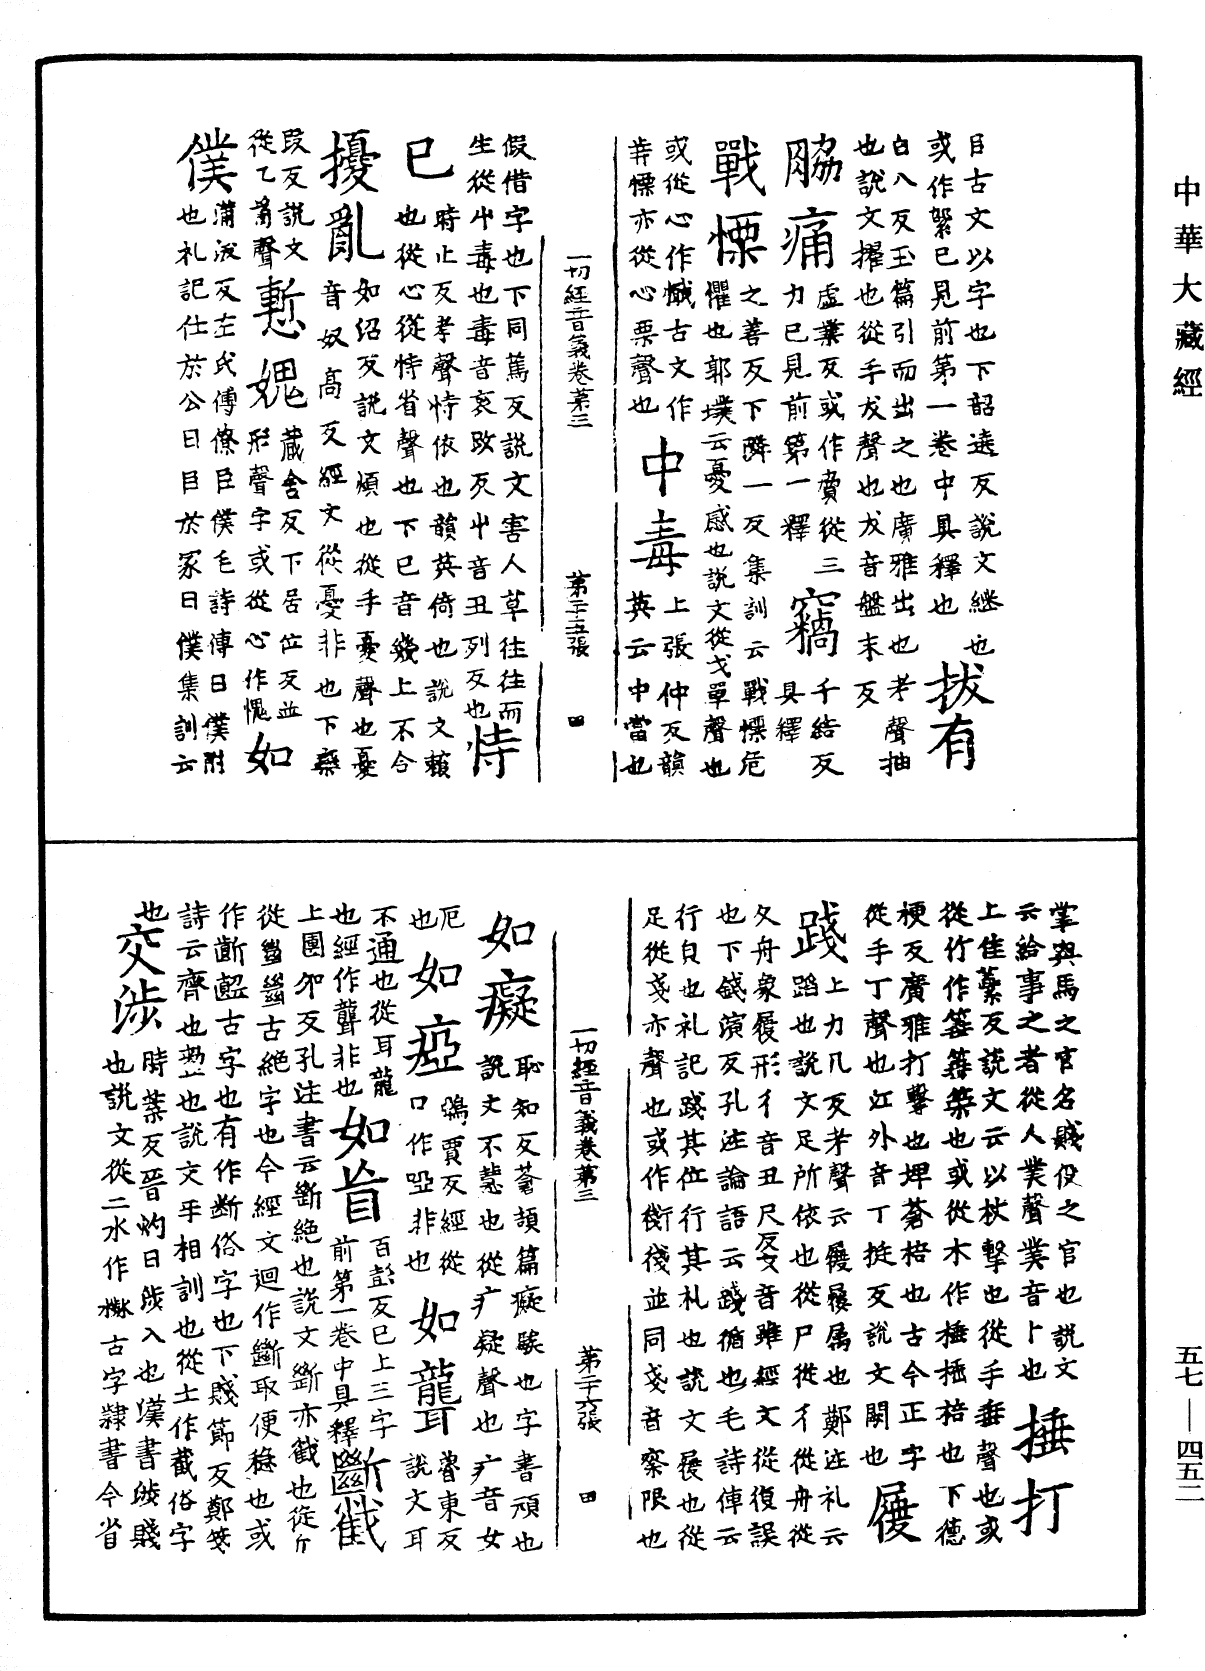 中華大藏經
目古文以字也下韶遶反說文継也
或作綤已見前第一卷中具釋也 拔有
白八反玉篇引而出之也廣雅出也考聲抽
也說文擢也從手犮聲也犮音盤末反
脇痛 虛業反或作脅從三
力已見前第一釋 竊 千結反
具釋
戰慄 之善反下隣一反集訓云戰慄危
懼也郭璞云憂慼也說文從戈單聲也
或從心作懺古文作
慄亦從心栗聲也 中毒 上張仲反韻
英云中當也
一切經音義卷第三 第二十五張 田
假借字也下同篤反說文害人草往往而
生從屮毒也毒音哀改反屮音丑列反也 恃
已 時止反考聲恃依也韻英倚也說文賴
也從心從恃省聲也下已音幾上不合
擾亂 如紹反說文煩也從手憂聲也憂
音奴高反經文從憂非也下欒
段反說文
從乙𤔔聲 慙媿 蔵含反下居位反並
形聲字或從心作愧 如
僕 蒲沃反左氏傳僚臣僕毛詩傳曰僕附
也礼記仕於公曰臣於家曰僕集訓云
掌輿馬之官名賤役之官也說文
云給事之者從人菐聲菐音卜也 捶打
上佳蘂反說文云以杖擊也從手垂聲也或
從竹作箠箠築也或從木作棰棰棓也下德
梗反廣雅打擊也埤蒼棓也古今正字
從手丁聲也江外音丁挺反說文闕也 履
踐 上力几反考聲云履屨属也鄭注礼云
踏也說文足所依也從尸從彳從舟從
夊舟象履形彳音丑尺反夊音雖經文從復誤
也下錢演反孔注論語云踐循也毛詩傳云
行皃也礼記踐其位行其礼也說文履也從
足從戔亦聲也或作衝後並同戔音殘限也
一切經音義卷第三 第二十六張 田
如癡 恥知反蒼頡篇癡騃也字書頑也
說文不慧也從疒疑聲也疒音女
厄
也 如瘂 鵶賈反經從
口作啞非也 如聾 祿東反
說文耳
不通也從耳龍
也經作聾非也 如盲 百彭反已上三字
前第一卷中具釋 斷截
上團夘反孔注書云斷絕也說文斷亦截也從斤
從𢇍𢇍古絕字也今經文迴作斷取便穩也或
作㫁𠸿古字也有作断俗字也下賤節反鄭箋
詩云齊也整也說文乎相訓也從土作截俗字
也 交涉 時葉反晉灼曰涉入也漢書涉賤
也說文從二水作㴇古字隸書今省
五七—四五二